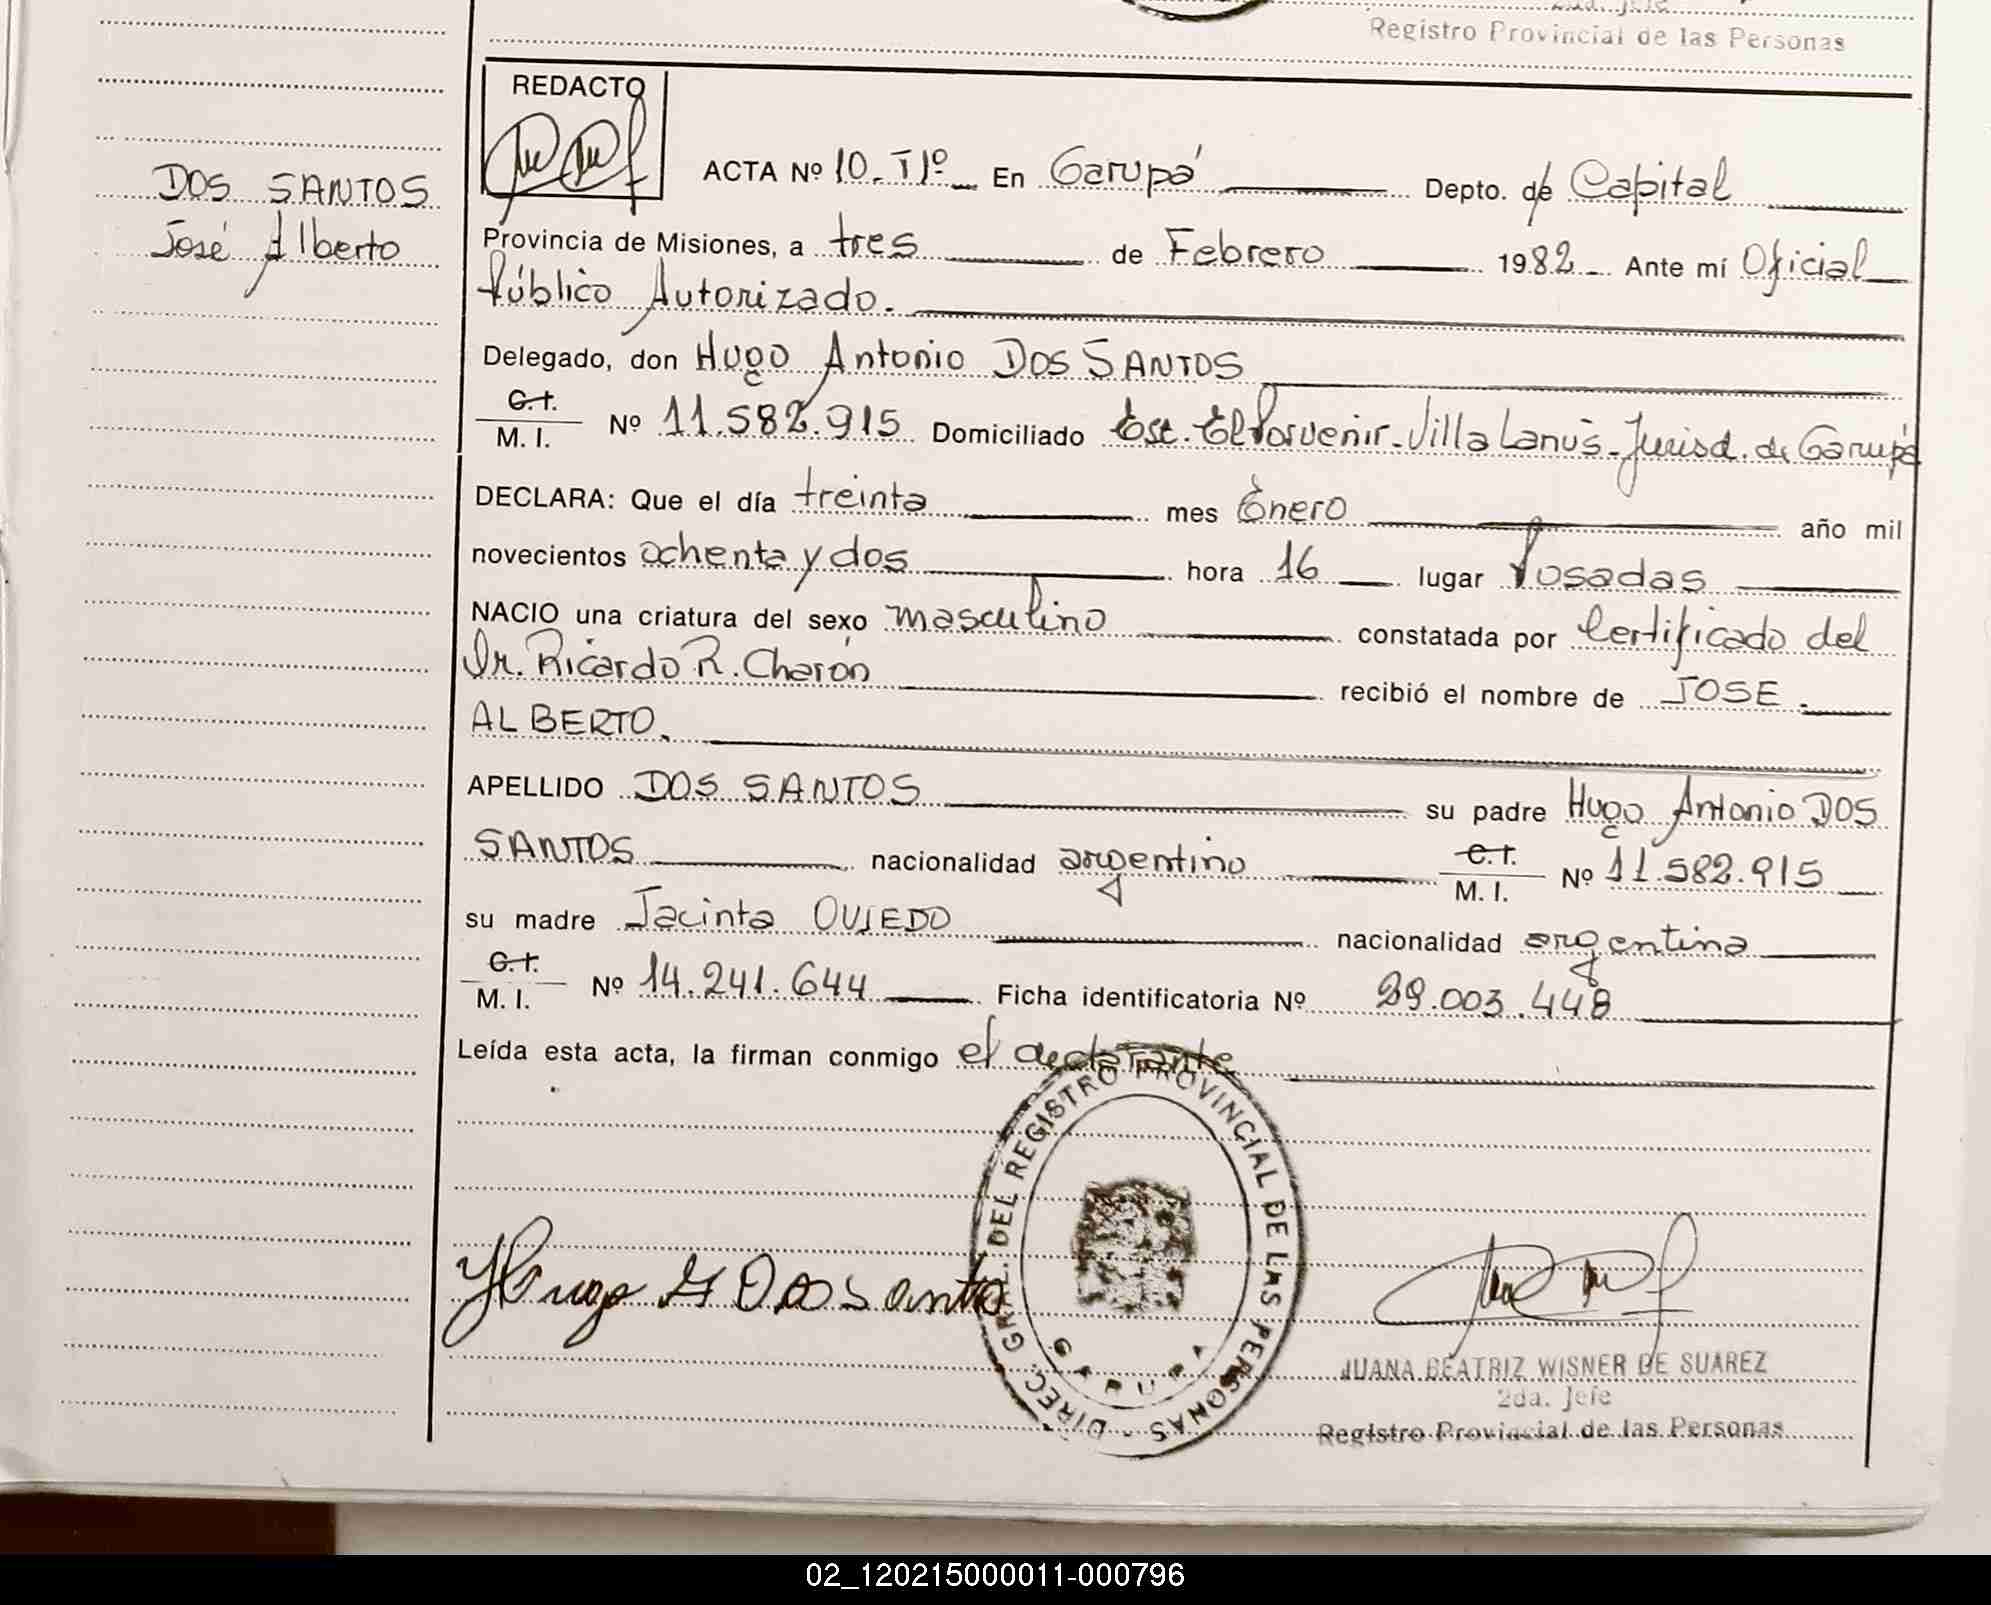 2da. Jefe
Registro Provincial de las Personas
REDACTO
DOS SANTOS
José Alberto
ACTA Nº 10. Tº I En Garupá Depto. de Capital
Provincia de Misiones, a tres de Febrero 1982 Ante mí Oficial
Público Autorizado.
Delegado, don Hugo Antonio DOS SANTOS
C.I.
M. I. Nº 11.582.915 Domiciliado Esc. El Porvenir - Villa Lanús - Jurisd. de Garupá
DECLARA: Que el día treinta mes Enero año mil
novecientos ochenta y dos hora 16 lugar Posadas
NACIO una criatura del sexo masculino constatada por Certificado del
Dr. Ricardo R. Charón recibió el nombre de JOSE
ALBERTO.
APELLIDO DOS SANTOS su padre Hugo Antonio DOS
SANTOS nacionalidad argentino C.I. M. I. Nº 11.582.915
su madre Jacinta OVIEDO nacionalidad argentina
C.I.
M. I. Nº 14.241.644 Ficha identificatoria Nº 29.003.448
Leída esta acta, la firman conmigo el declarante
DIREC. GRAL. DEL REGISTRO PROVINCIAL DE LAS PERSONAS -
GARUPA
Hugo A Dos Santo
JUANA BEATRIZ WISNER DE SUAREZ
2da. Jefe
Registro Provincial de las Personas
02_120215000011-000796